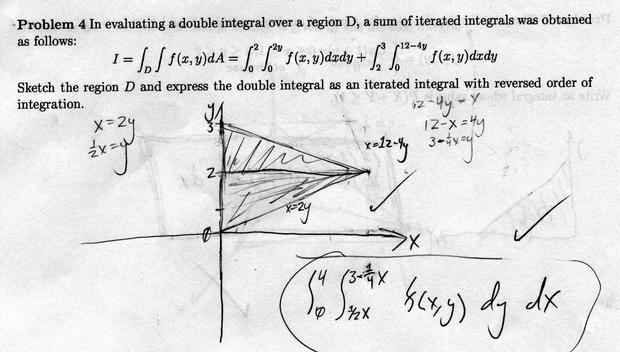 Problem 4 In evaluating a double integral over a region D, a sum of iterated integrals was obtained
as follows:
I = ∫_D ∫ f(x, y)dA = ∫_0^2 ∫_0^{2y} f(x, y)dxdy + ∫_2^3 ∫_0^{12-4y} f(x, y)dxdy
Sketch the region D and express the double integral as an iterated integral with reversed order of
integration.
x=2y
½x=y
12-4y=x
12-x=4y
3-¼x=y
y
3
2
x=12-4y
x=2y
0
x
∫_0^4 ∫_{1/2x}^{3-¼x} f(x,y) dy dx